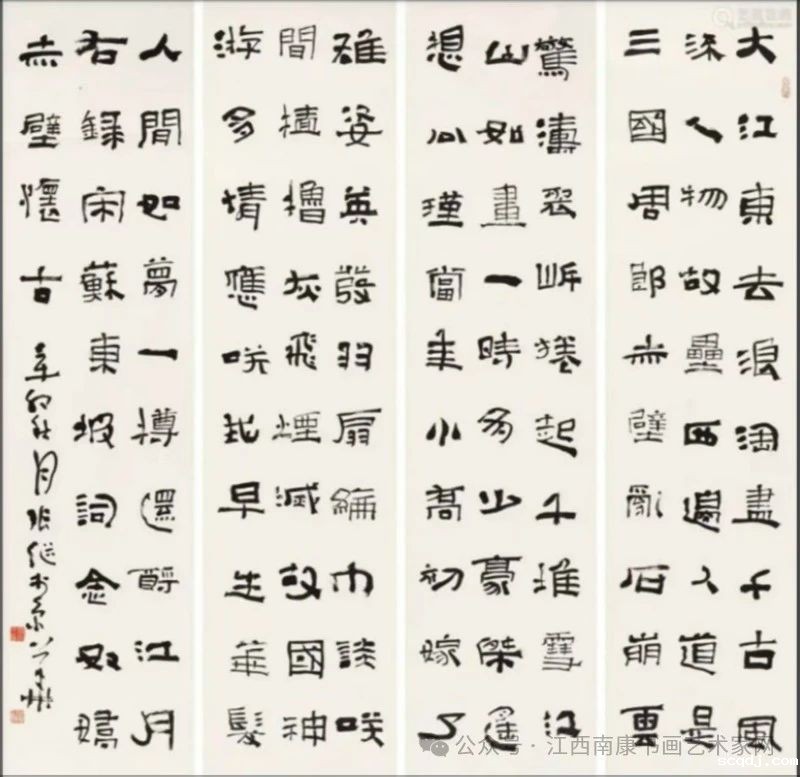 大江東去浪淘盡千古風
流人物故壘西邊人道是
三國周郎赤壁亂石崩雲
驚濤裂岸捲起千堆雪江
山如畫一時多少豪傑遙
想公瑾當年小喬初嫁了
雄姿英發羽扇綸巾談咲
間檣櫓灰飛煙滅故國神
游多情應咲我早生華髮
人間如夢一樽還酹江月
右錄宋蘇東坡詞念奴嬌
赤壁懷古 辛卯秋月张继书於京
公众号 · 江西南康书画艺术家网
scqdj.com